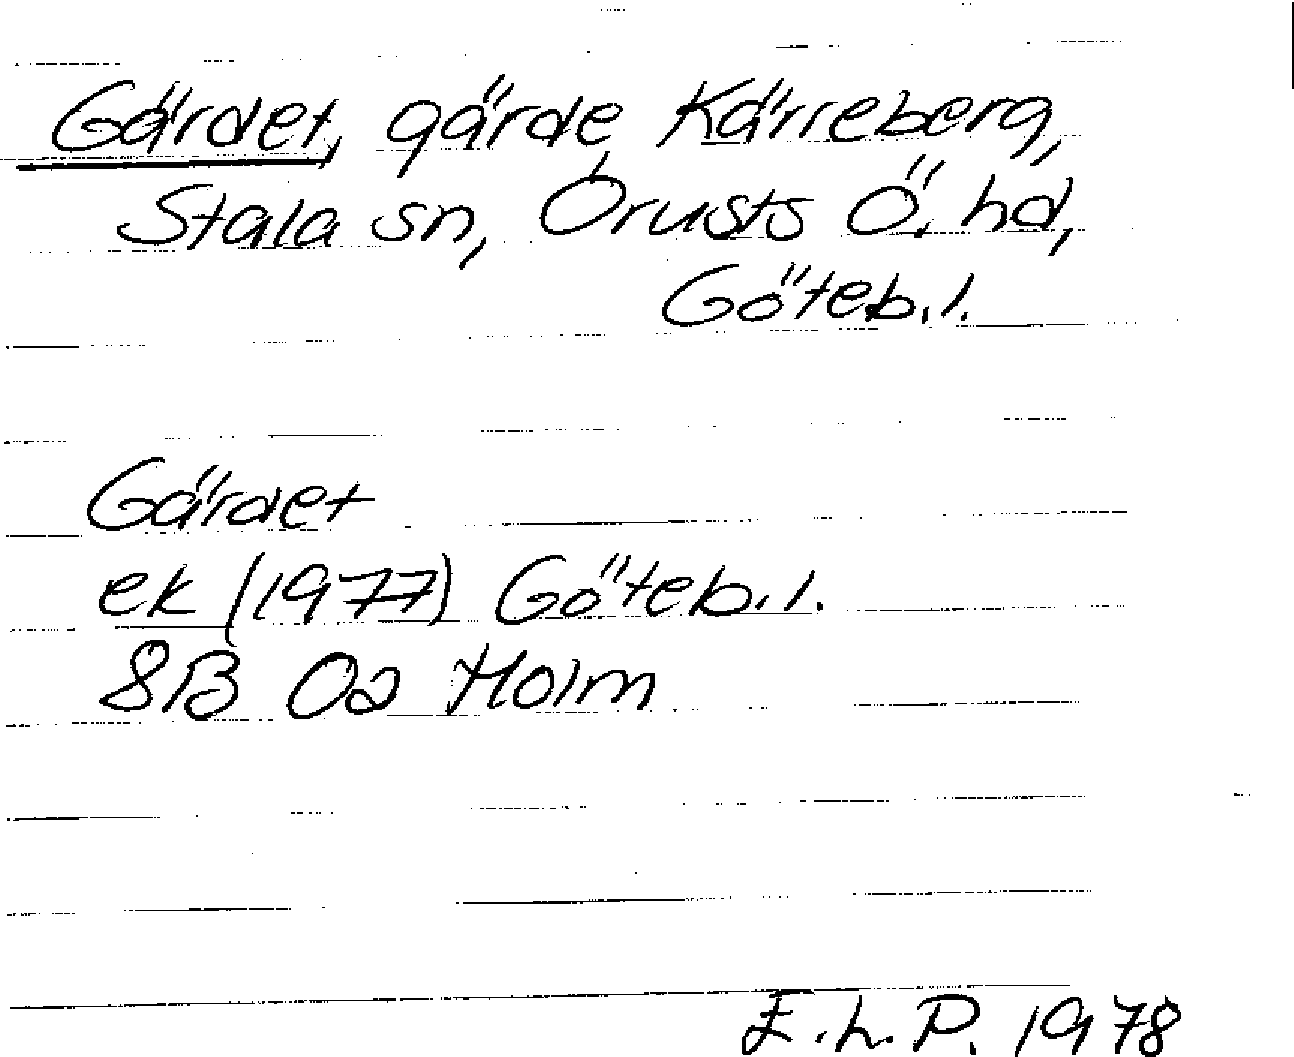 Gärdet, gärde, Kärreberg,
Stala sn, Orusts Ö. hd,
Göteb. l.
Gärdet
ek (1977) Göteb. l.
8B 0a Holm
E. L. P. 1978